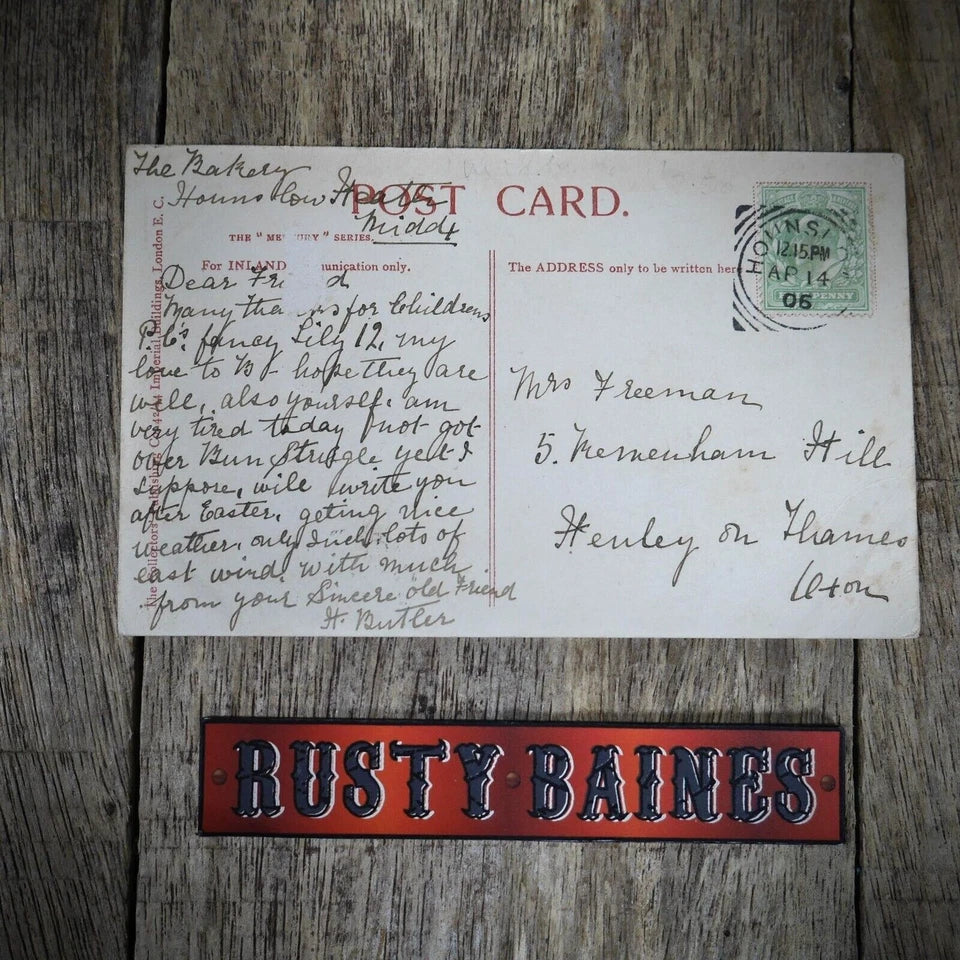 The Bakery
Hounslow Heath
Middx
POST CARD.
THE "MERCURY" SERIES.
For INLAND unication only.
The ADDRESS only to be written here
HOUNSLO
12.15.PM
AP 14
06
PENNY
Dear Fri d
Many tha s for Childrens
P.C's. fancy Lily 12, my
love to B - hope they are
well, also yourself. am
very tired today not got
over Bun Strugle yet I
suppose, will write you
after Easter, geting nice
weather, only such lots of
east wind, with much
from your Sincere old Friend
H. Butler
Mrs Freeman
5. Remenham Hill
Henley on Thames
Oxon
The Collectors' Publishing Co. Imperial Buildings, London E. C.
RUSTY BAINES